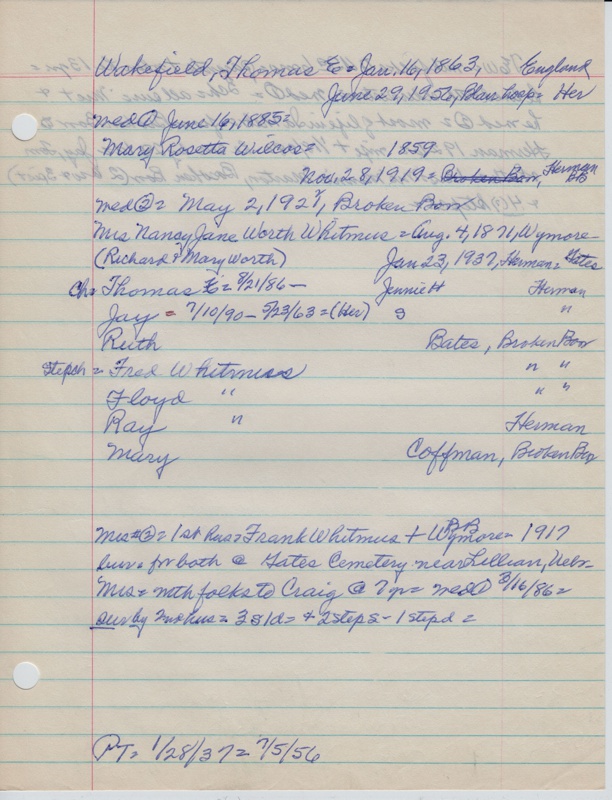 Wakefield, Thomas E = Jan. 16, 1863, England
June 29, 1956, Her
med① June 16, 1885=
Mary Rosetta Wilcox= 1859
Nov. 28, 1919 = Broken Bow, Herman
med② = May 2, 1921, Broken Bow
Mrs Nancy Jane Worth Whitmus = Aug. 4, 1871, Wymore-
(Richard & Mary Worth) Jan 23, 1937, Herman = Gates
Ch= Thomas E = 8/21/86 - Jennie H Herman
Jay = 7/10/90 - 5/23/63 = (Her) S "
Ruth Bates, Broken Bow
Stepch = Fred Whitmus " "
Floyd " " "
Ray " Herman
Mary Coffman, Broken Bow
Mrs#② = 1st hus = Frank Whitmus + Wymore- BB 1917
for both @ Gates Cemetery near Lillian, Nebr-
Mrs = mth folks to Craig @ 7 yr= med① 3/16/86=
Surv by hus = 3s 1d= + 2 steps - 1 stepd =
PT= 1/28/37 = 7/5/56